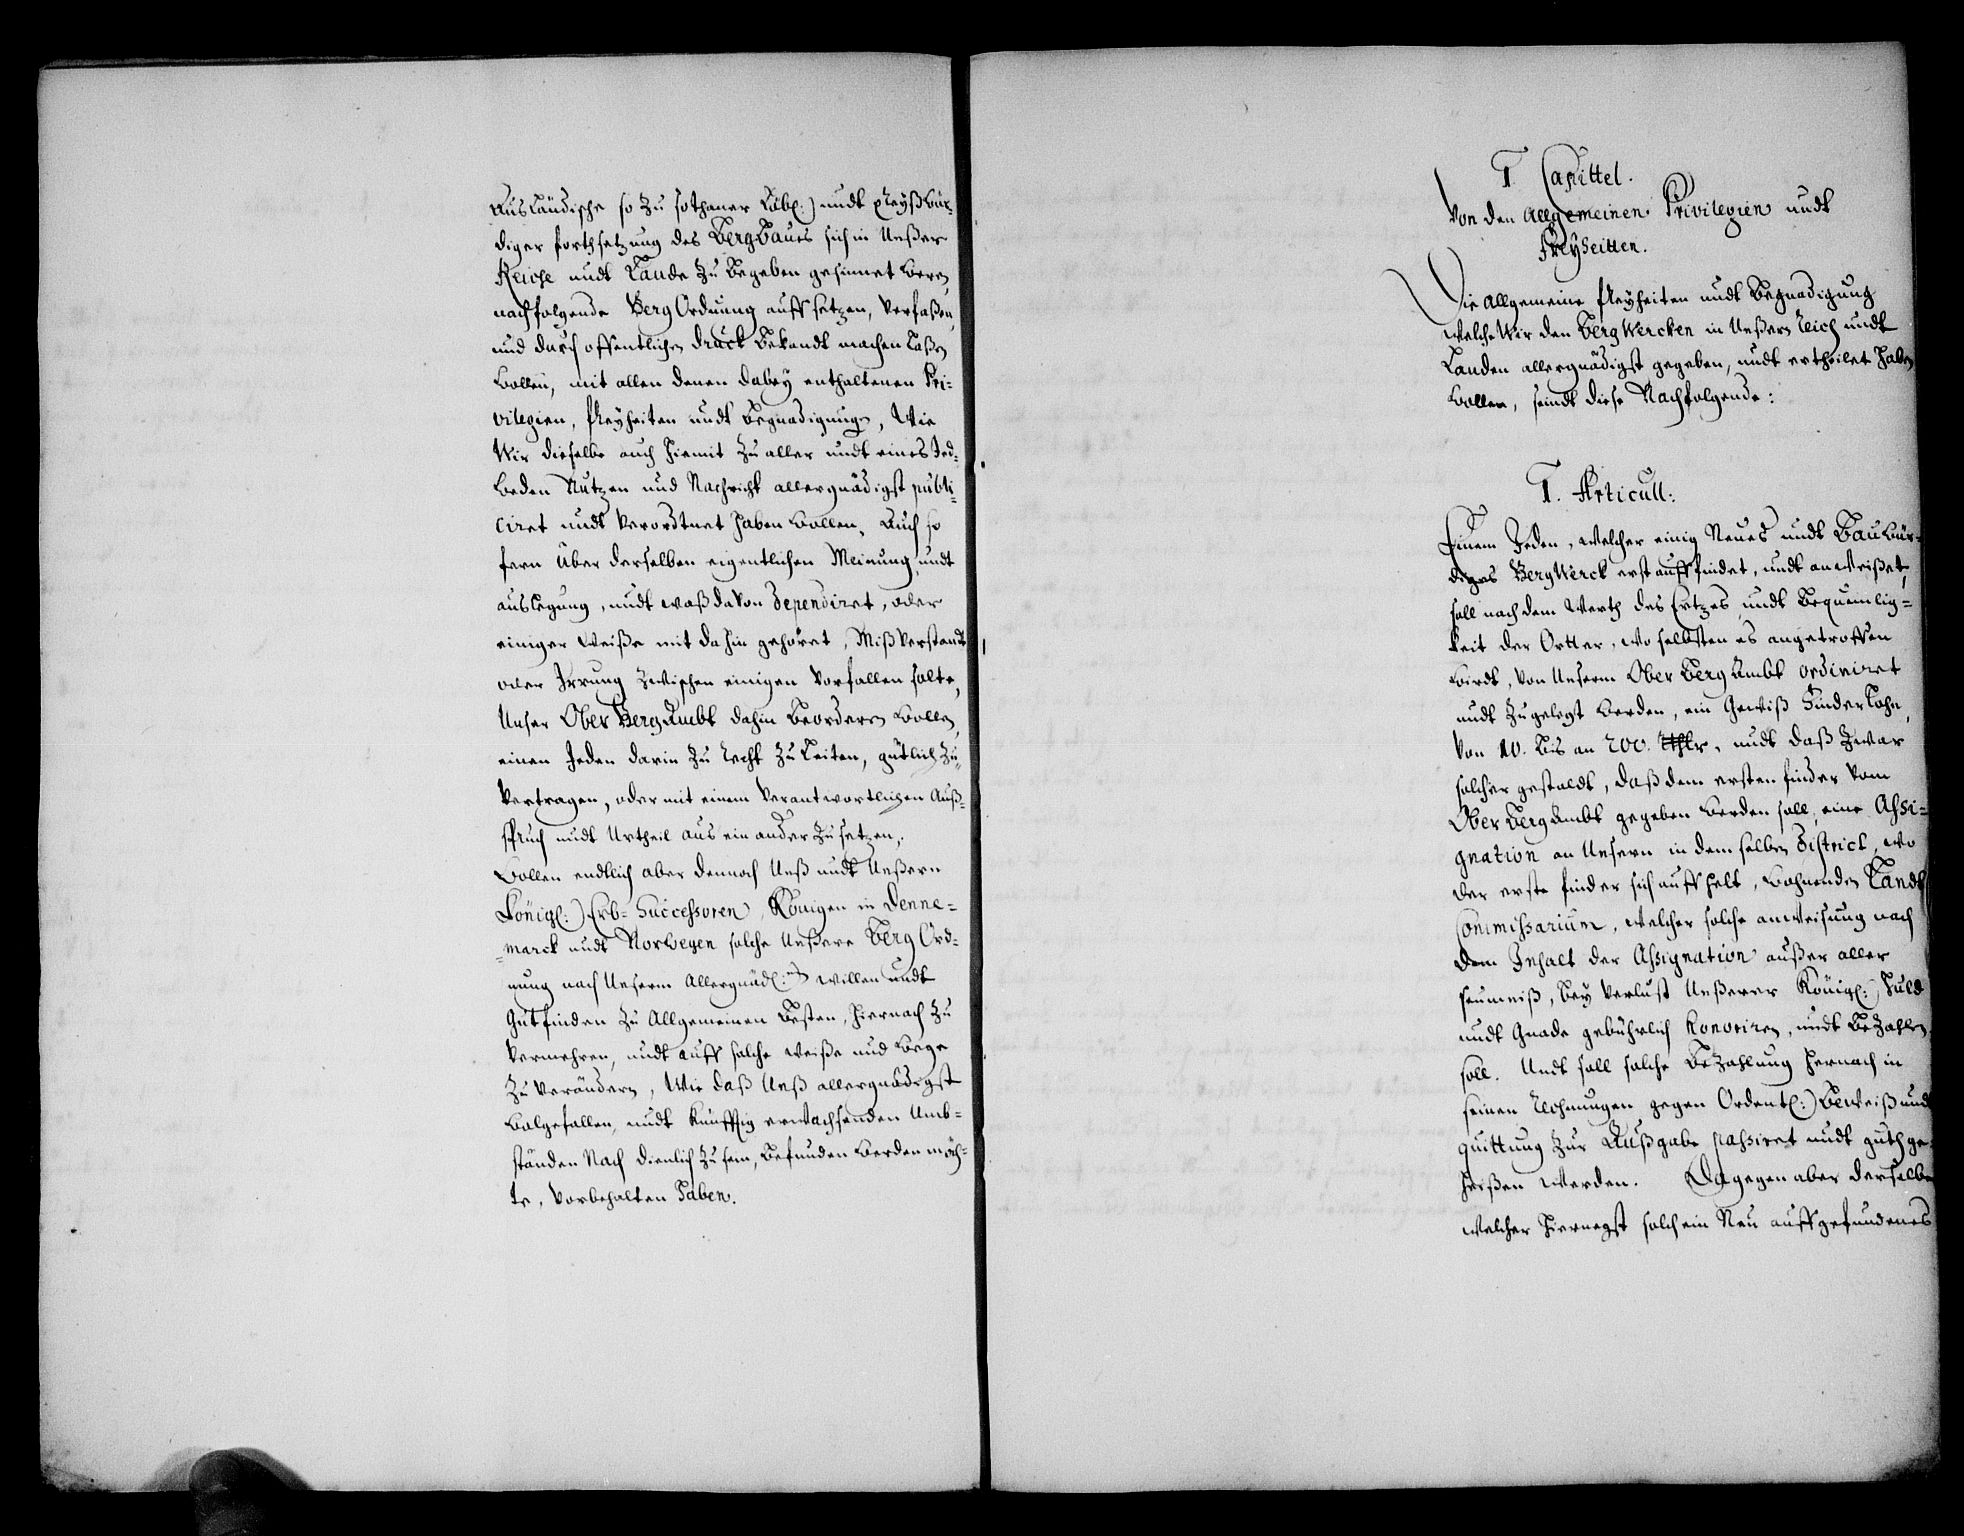 ausLändische so zu sothaner Löbl: undt preyßwür-
diger forthsetzung des Bergbaues sich in Unßer
Reiche undt Lande zu begeben gesinnet weren,
nachfolgende Berg Ordnung auff setzen, verfaßen,
und durch offentlichen druck bekandt machen Laßen
wollen, mit allen denen dabey enthaltenen Pri-
vilegien, freyheiten undt begnadigungen, Wie
Wir dieselbe auch hiemit zu aller undt eines Jed-
weden Nutzen und Nachricht allergnädigst publi-
ciret undt verordtnet haben wollen. Auch so
fern über derselben eigentlichen Meinung undt
auslegung, undt waß davon dependiret, oder
einiger weiße mit dahin gehöret, Mißverstandt
oder Irrung zwischen einigen vorfallen solte,
Unser Ober BergAmbt dahin beorderen wollen,
einen Jeden darin zu recht zu leiten, gütlich zu
vertragen, oder mit einem verantwortlichen Auß-
spruch undt Urtheil aus ein ander zu setzen,
wollen endtlich aber dennoch Unß undt Unßern
Königl: Erb-Successoren, Königen in Denne-
marck undt Norwegen solche Unßere Berg Ord-
nung nach Unserm Allergnäd: willen undt
Gutfinden zu Allgemeinen besten, hiernach zu
vermehren, undt auff solche weiße und wege
zu verändern, Wie daß Unß allergnädigst
wolgefallen, undt künfftig erwachsenden Umb-
ständen Nach dienlich zu sein, befunden werden möch-
te, vorbehalten haben.
I. Capittel.
Von den Allgemeinen Privilegien undt
freyheitten.
Die allgemeine freyheiten undt begnadigung
welche Wir den BergWercken in Unßern reich undt
Landen allergnädigst gegeben, undt ertheilet haben
wollen, seindt diese Nachfolgende:
I. Articull:
Einem Jeden, welcher einig Neues undt Bauwür-
diges BergWerck erst auffindet, undt anweißet,
soll nach dem Werth des Ertzes undt bequemlig-
keit der Ortter, wo selbsten es angetroffen
wirdt, von Unserm Ober Berg Ambt ordiniret
undt zugelegt werden, ein Gewiß Finder Lohn,
von 10. bis an 200. Rthlr, undt daß zwar
solcher gestaldt, daß dem ersten finder vom
Ober BergAmbt gegeben werden soll, eine Assi-
gnation an Unsern in dem selben District, wo
der erste finder sich auffhelt, wohnenden Landt
Commissarium, welcher solche anweisung nach
dem Inhalt der Assignation außer aller
seumniß, bey verlust Unßerer Königl: Huld
undt Gnade gebührlich honoriren, undt bezahlen
soll. Undt soll solche bezahlung hernach in
seinen rechnungen gegen Ordentl: beweiß undt
quittung zur Außgabe passiret undt guth ge-
heißen werden. Dagegen aber derselbe
welcher hiernegst solch ein Neu auffgefundenes